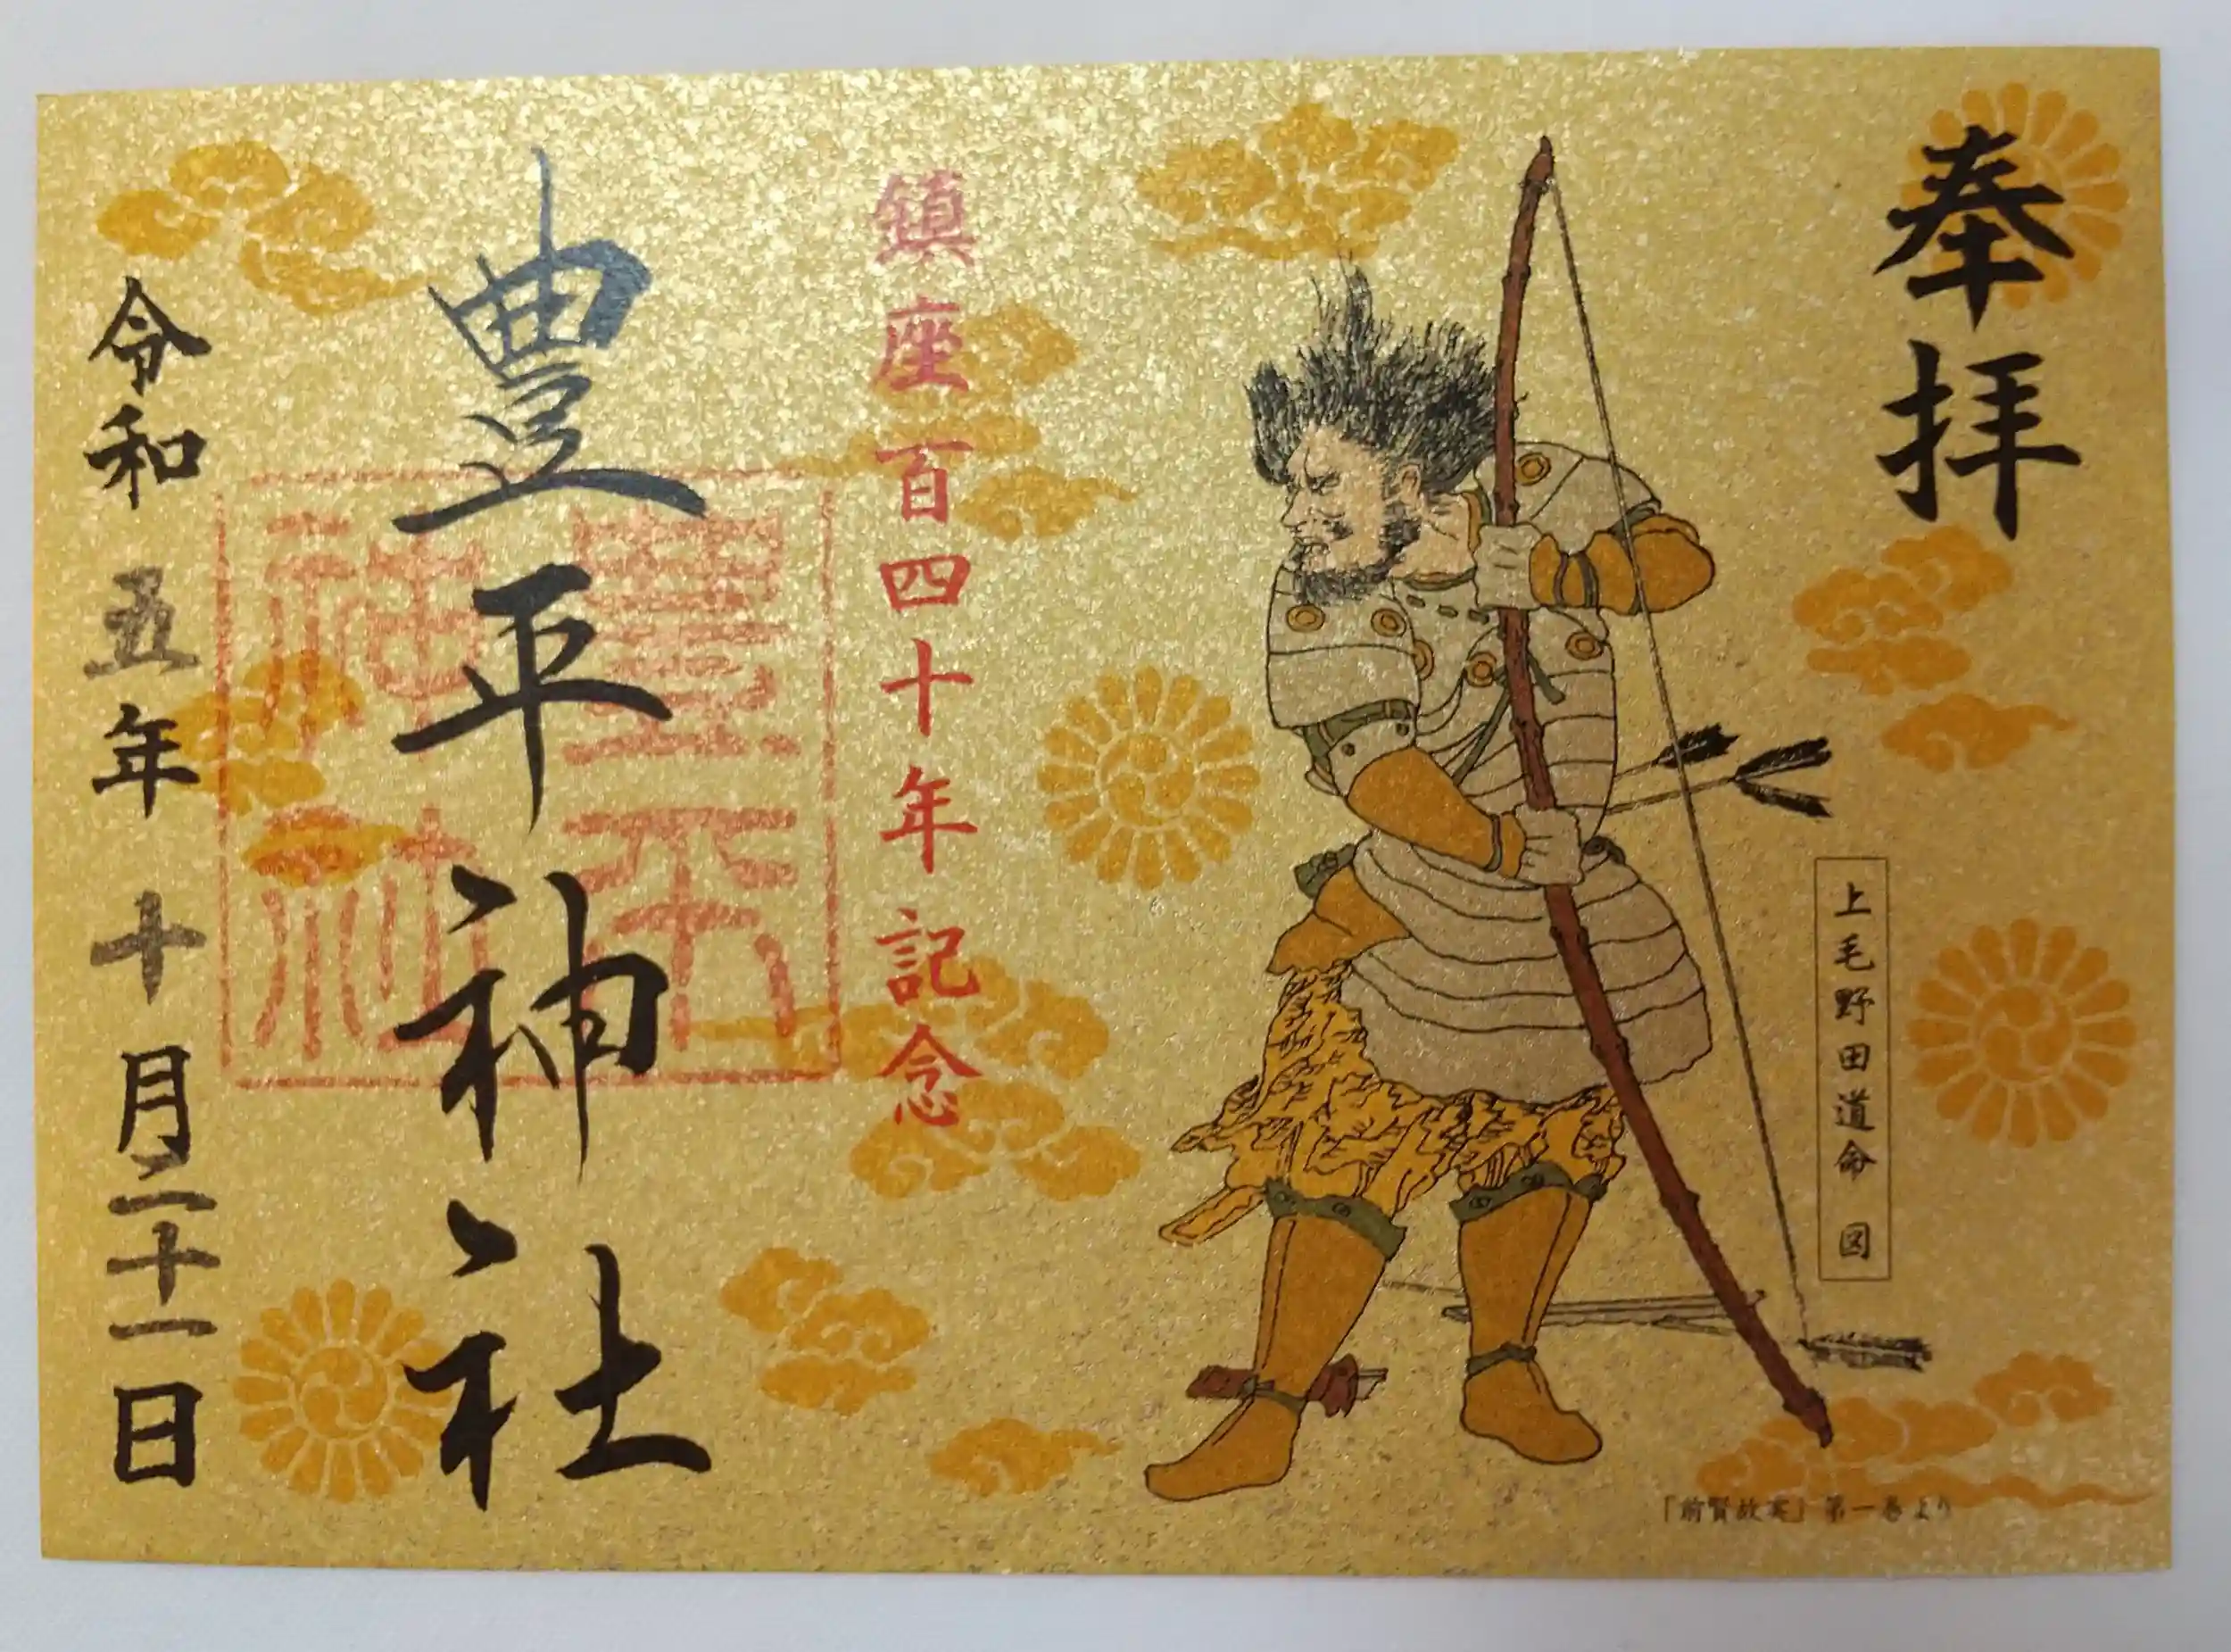 奉拝
上毛野田道命 図
「前賢故実」第一巻より
鎮座百四十年記念
豊平神社
豊平
神社
令和五年十月二十一日